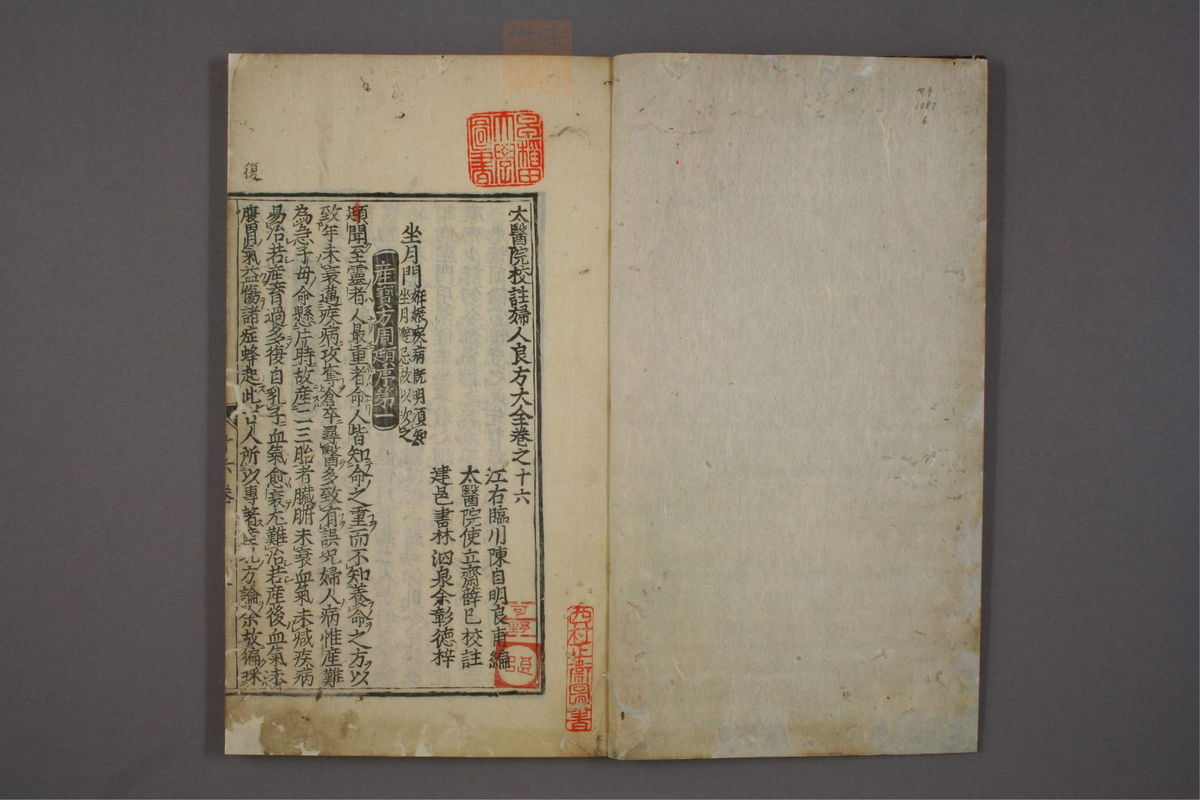 ヌ9
1087
6
早稲田大學圖書
復
太醫院校註婦人良方大全卷之十六
江右臨川陳自明良甫編
太醫院使立齋薛已校註
建邑書林泗泉余彰德梓
坐月門
妊娠疾病既明須知
坐月避忌故以次之
産寶方周頲序第一
頲聞至靈者人最重者命人皆知命之重而不知養命之方以
致年未衰邁疾病攻奪倉卒尋醫多致有誤况婦人病惟産難
為急子母命懸片時故産二三胎者臟腑未衰血氣未减疾病
易治若産育過多復自乳子血氣愈衰尤難治若産後血氣未
腹胃氣益傷諸症蜂起此古人所以專著産方論余故徧採
十六卷
西村圖書